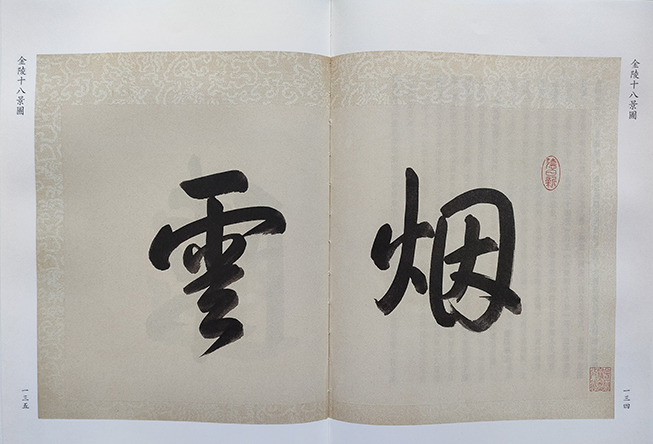 金陵十八景圖
烟
一三四
金陵十八景圖
雲
一三五